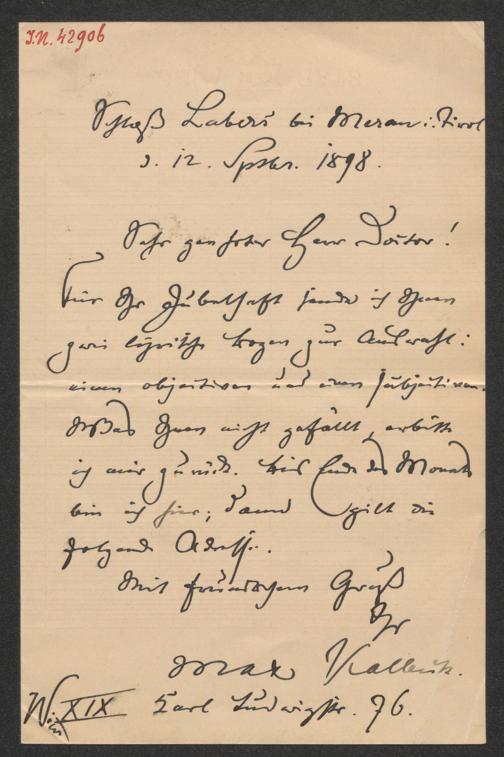 J.N. 42906
Schloß Labers bei Meran i. Tirol
d. 12. Septbr. 1898.
Sehr geehrter Herr Doctor!
Für Ihr Jubelheft sende ich Ihnen
zwei lyrische Bogen zur Auswahl:
einen objectiven und einen subjectiven.
Was Ihnen nicht gefällt, erbitte
ich mir zurück. Bis Ende des Monats
bin ich hier; dann gilt die
folgende Adresse.
Mit freundlichem Gruß
Ihr
Max Kalbeck.
Wien XIX Karl Ludwigstr. 76.